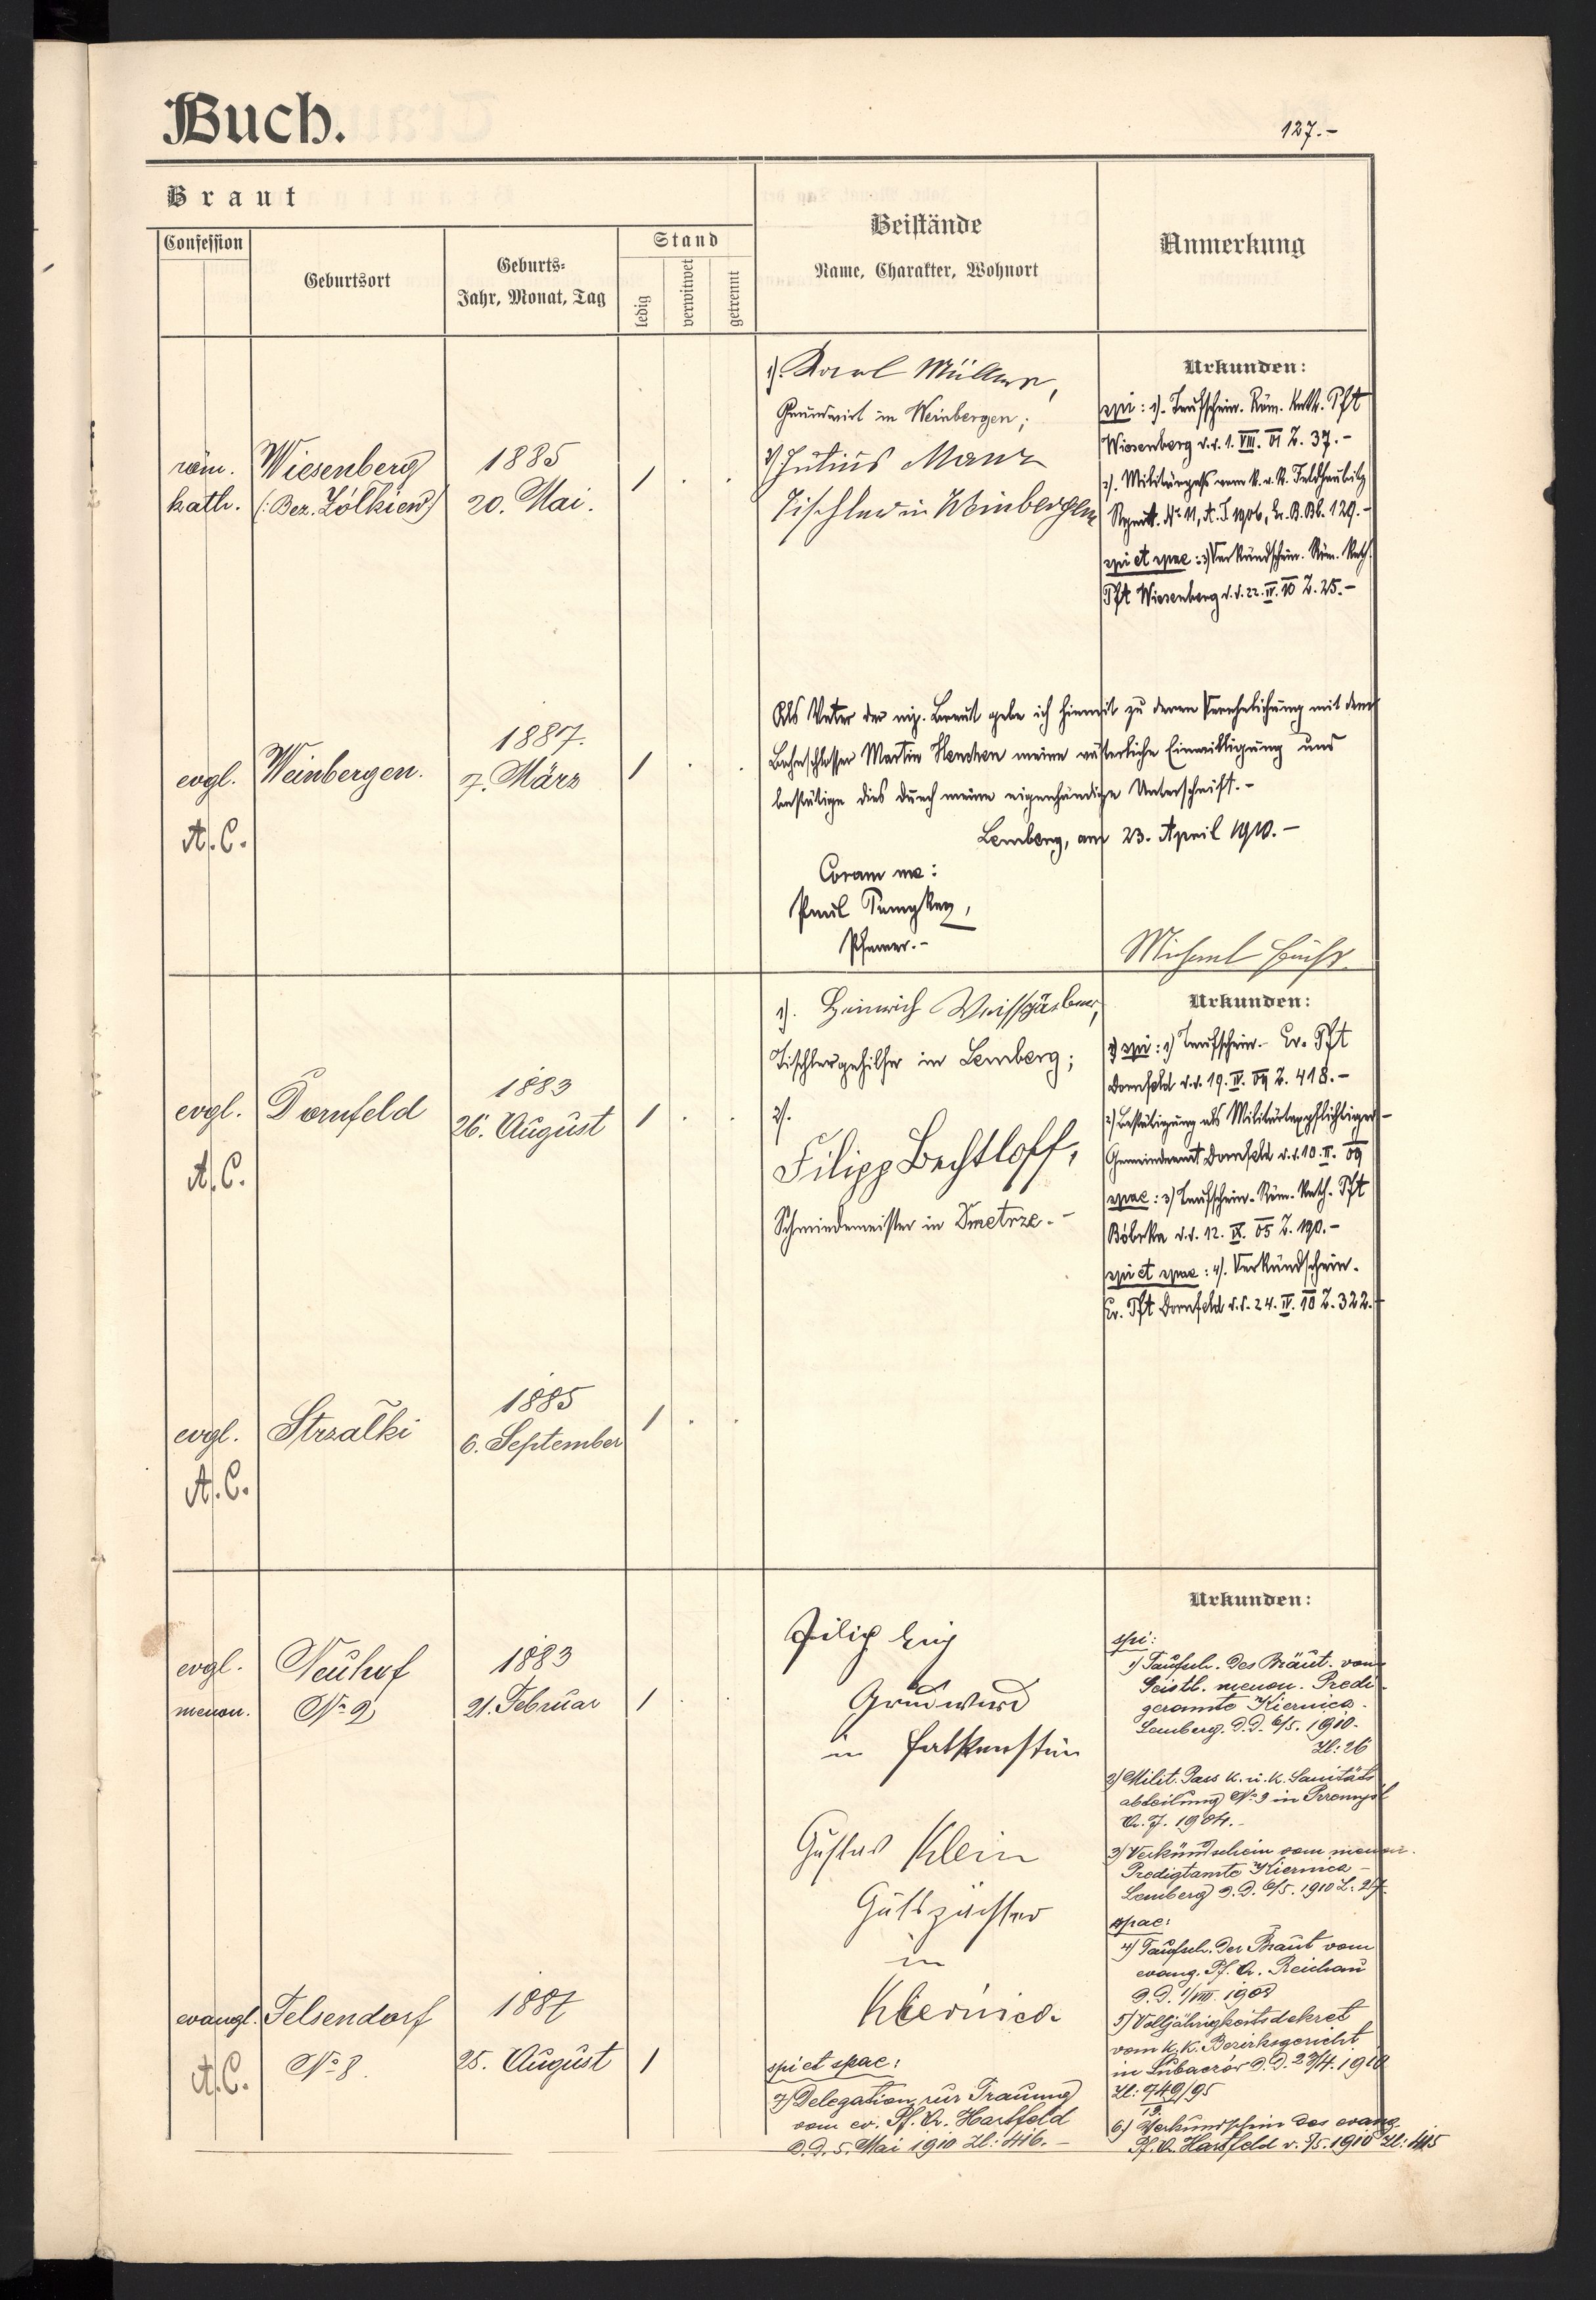 Buch.
127.-
Braut
Confession
Geburtsort
Geburts-
Jahr, Monat, Tag
Stand
ledig
verwitwet
getrennt
Beistände
Name, Charakter, Wohnort
Anmerkung
röm.
kath.
Wiesenberg
(: Bez. Żółkiew :)
1885
20. Mai.
1 . .
1). Karl Müller,
Grundwirt in Weinbergen;
2) Julius Manz
Tischler in Weinbergen
Urkunden:
spi: 1). Taufschein. Röm. Kath. Pft
Wiesenberg d.d. 1. VIII. 01 Z. 37.-
2). Militärpaß vom k. u. k. Feldhaubitz
Regmt. № 11, A. J. 1906, Gr. B. Bl. 129.-
spi et spae: 3) Verkündschein. Röm. Kath.
Pft Wiesenberg d.d. 22. IV. 10 Z. 25.-
evgl.
A. C.
Weinbergen.
1887.
7. März
1 . .
Als Vater der mj. Braut gebe ich hiemit zu deren Verehelichung mit dem
Bahnschlosser Martin meine väterliche Einwilligung und
bestätige dies durch meine eigenhändige Unterschrift.-
Lemberg, am 23. April 1910.-
Coram me:
Paul
Pfarrer.-
Michael
evgl.
A. C.
Dornfeld
1883
26. August
1 . .
1). Heinrich Weissgärber,
Tischlergehilfe in Lemberg;
2).
Filipp Bechtloff,
Schmiedemeister in Dmetrze.-
Urkunden:
spi: 1) Taufschein.- Ev. Pft
Dornfeld d.d. 19. IV. 09 Z. 418.-
2) Bestätigung als Militärtaxpflichtiger-
Gemeindeamt Dornfeld d.d. 10. II. 09
spae: 3) Taufschein. Röm. Kath. Pft
Bóbrka d.d. 12. IX. 05 Z. 190.-
spi et spae: 4). Verkündschein.
Ev. Pft Dornfeld d.d. 24. IV. 10 Z. 322.-
evgl.
A. C.
Strzałki
1885
6. September
1 . .
evgl.
menon.
Neuhof
№ 2
1883
21. Februar
1 . .
Filip
Grundwirt
in Falkenstein
Gustav Klein
Gutspächter
in
Kiernica.
Urkunden:
spi:
1) Taufsch. des Bräut. vom
Geistl. menon. Predi-
geramte Kiernica-
Lemberg. d. d. 6/5. 1910.
Zl: 26
2) Milit. Pass k. u. k. Sanitäts
abteilung № 3 in Przemyśl
A. J. 1904.-
3) Verkündschein vom menon.
Predigtamte Kiernica-
Lemberg d. d. 6/5. 1910 Z: 27.
spae:
4) Taufsch. der Braut vom
evang. Pf. A. Reichau
d. d. 1/VIII. 1908
5) Volljährigkeitsdekret
vom k. k. Bezirksgericht
in Lubaczów d. d. 23/4. 1910
Zl: 949/95
13.
6) Verkündschein des evang.
Pf. A. Hartfeld v. 5/5. 1910 Zl: 415
evangl.
A. C.
Felsendorf
№ 8.
1887
25. August
1
spi et spae:
7) Delegation zur Trauung
vom ev. Pf. A. Hartfeld
d. d. 5. Mai 1910 Zl: 416.-